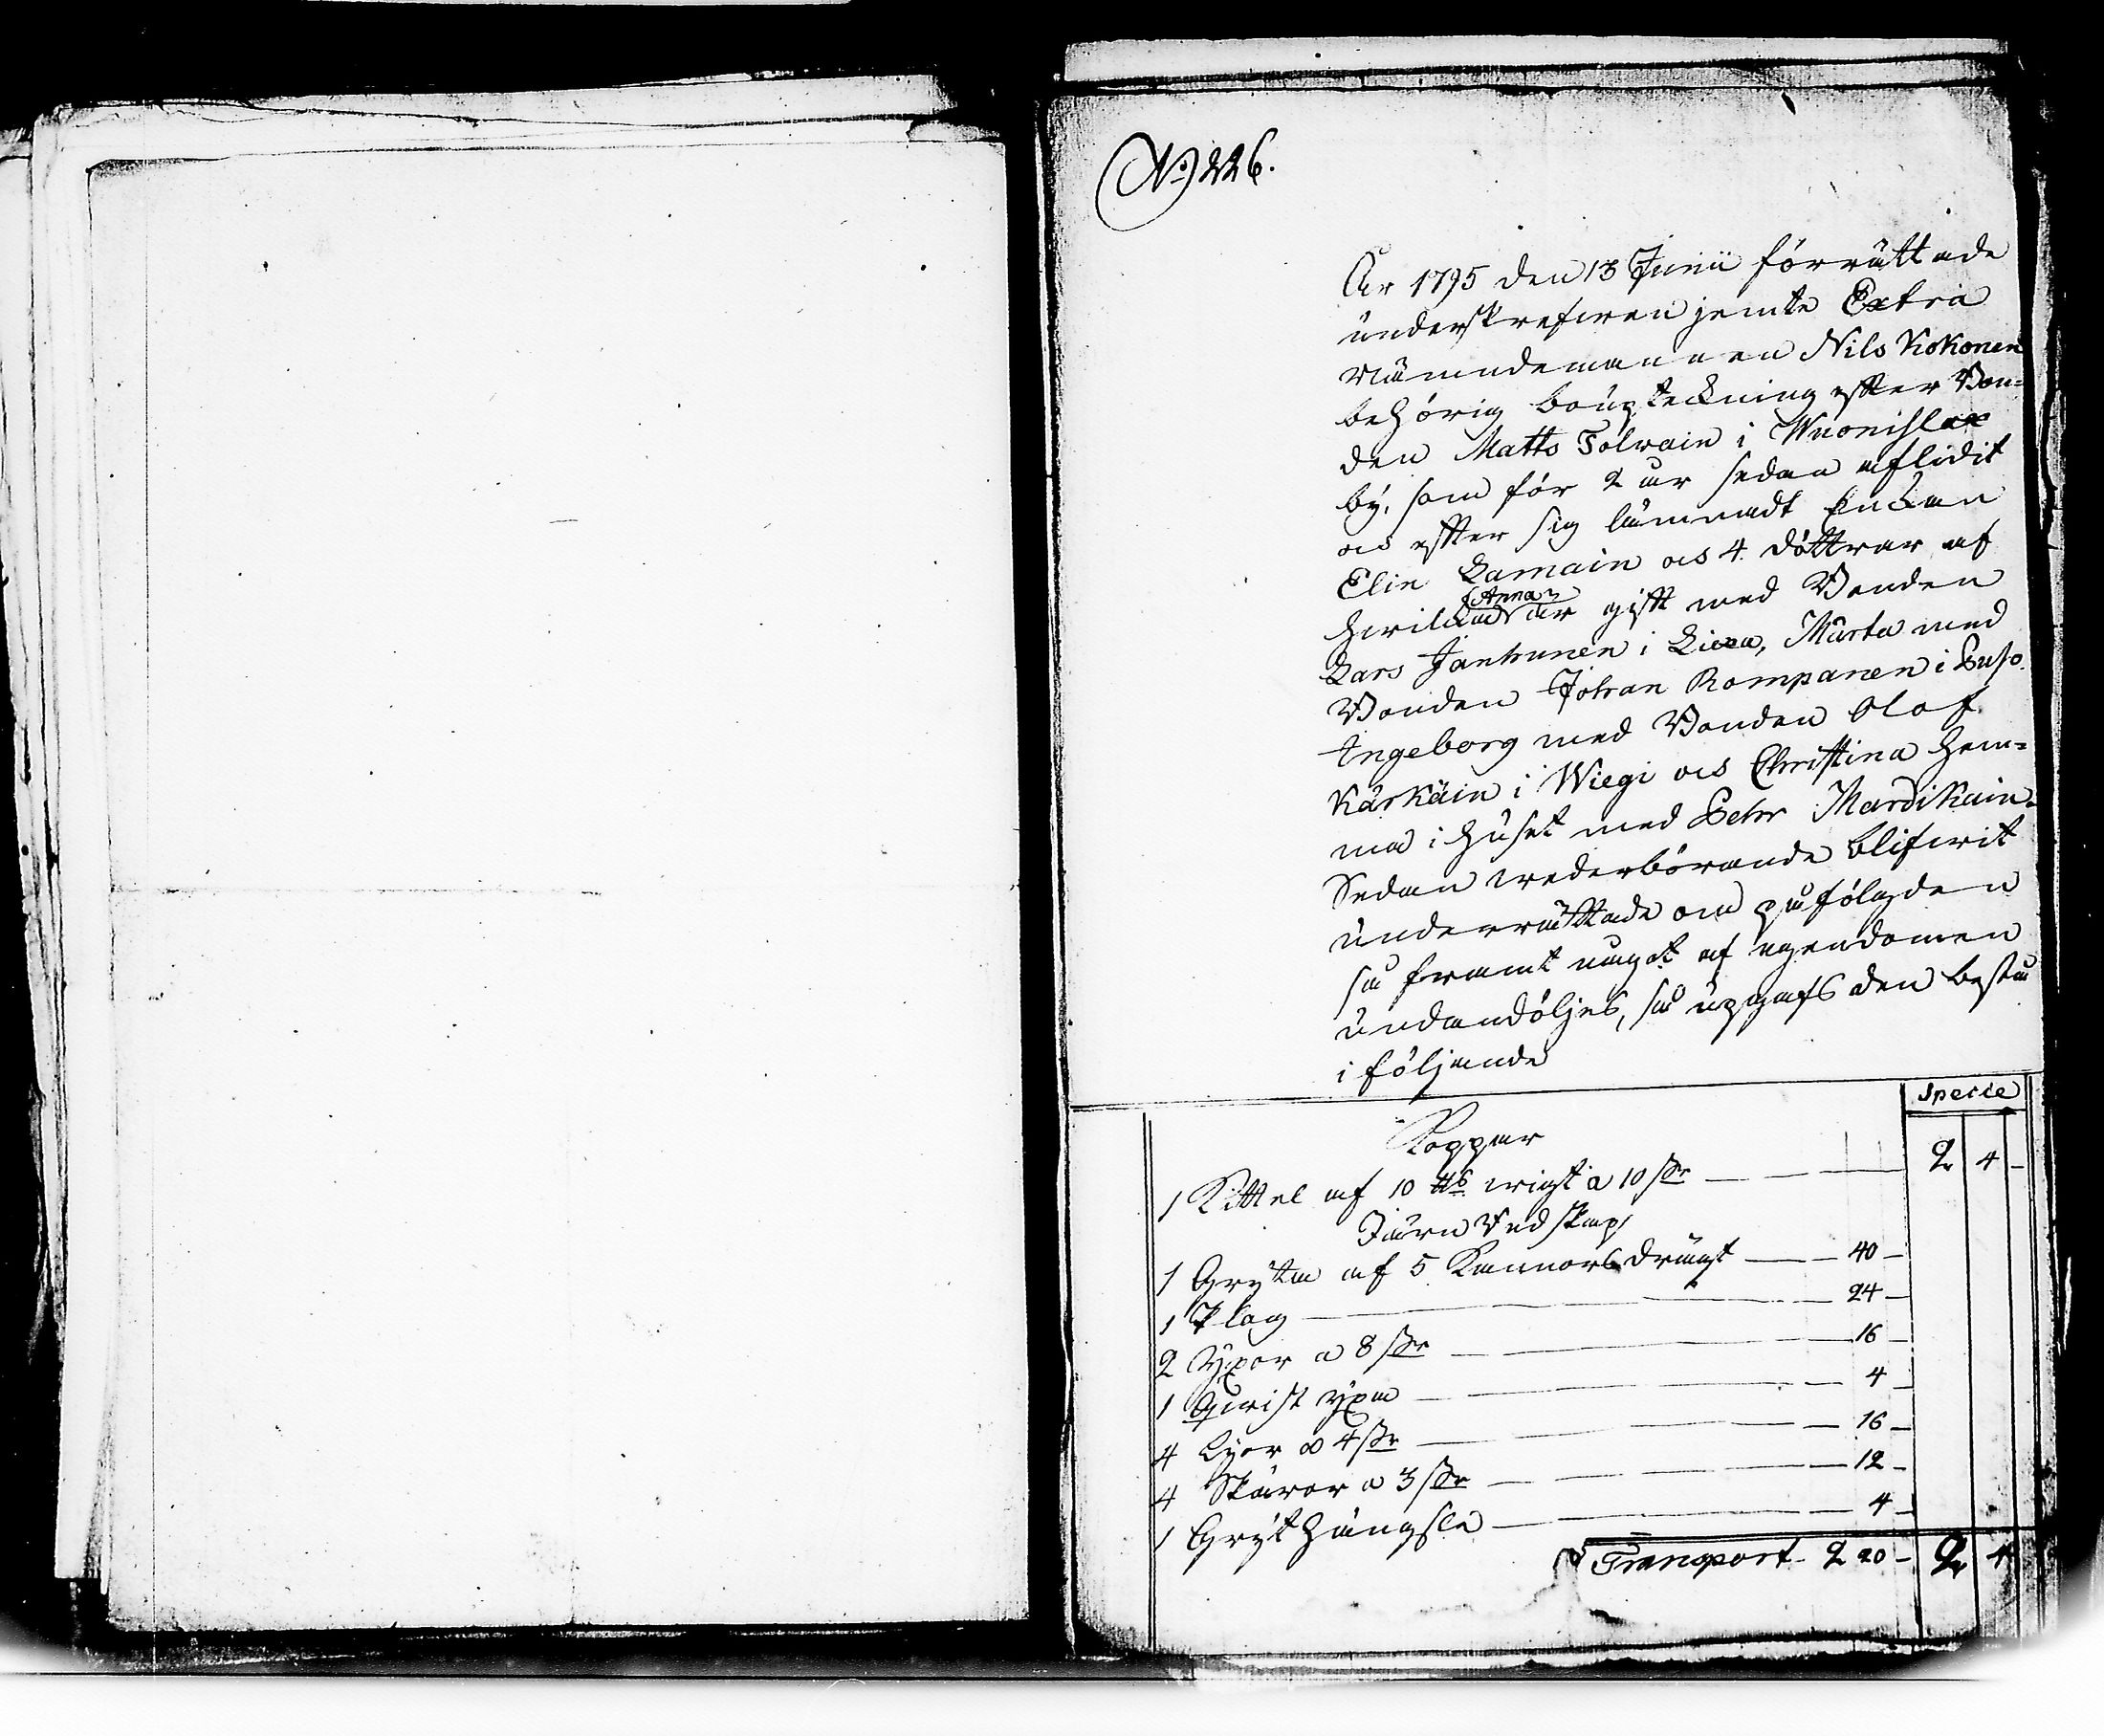 No 226.
År 1795 den 13 Junii förrättade
underskrefwen jemte Extra
Nämndemannen Nils Kokonen
behörig bouptekning effter Bon=
den Matts Tolwain i Wuonislax
by, som för 2 år sedan aflidit
och effter sig lämnadt Enckan
Elin Lamain och 4 döttrar af
hwilcka Anna är gift med Bonden
Lars Jantunen i Lixa, Märta med
Bonden Johan Rompanen i Puso
Ingeborg med Bonden Olof
Kärkäin i Wiegi och Christina hem=
ma i huset med Pehr Mardikain.
Sedan wederbörande blifwit
underrättade om påfölgden
så framt något af egendomen
undandöljes, så upgafs den bestå
i följande
Specie
Koppar
1 Kittel af 10 ℔ wigt a 10 sr — 2 4 –
Järn Redskap
1 Gryta af 5 Kannors drägt — 40 –
1 Plog — 24 –
2 Yxor a 8 sr — 16 –
1 Qwist yxa — 4 –
4 Lijor a 4 sr — 16 –
4 Skäror a 3 sr — 12 –
1 Gryt hängsle — 4 –
Transport 2 20 – 2 4